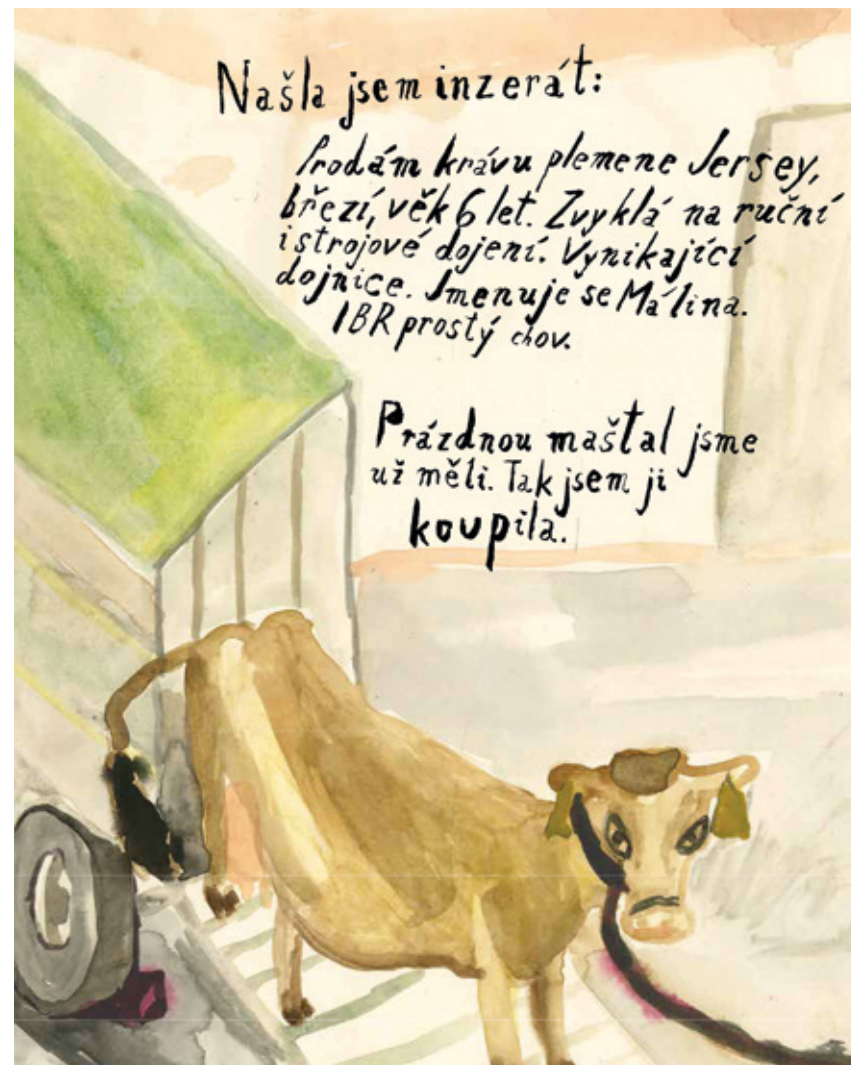 Našla jsem inzerát:
Prodám krávu plemene Jersey,
březí, věk 6 let. Zvyklá na ruční
i strojové dojení. Vynikající
dojnice. Jmenuje se Málina.
IBR prostý chov.
Prázdnou maštal jsme
už měli. Tak jsem ji
koupila.